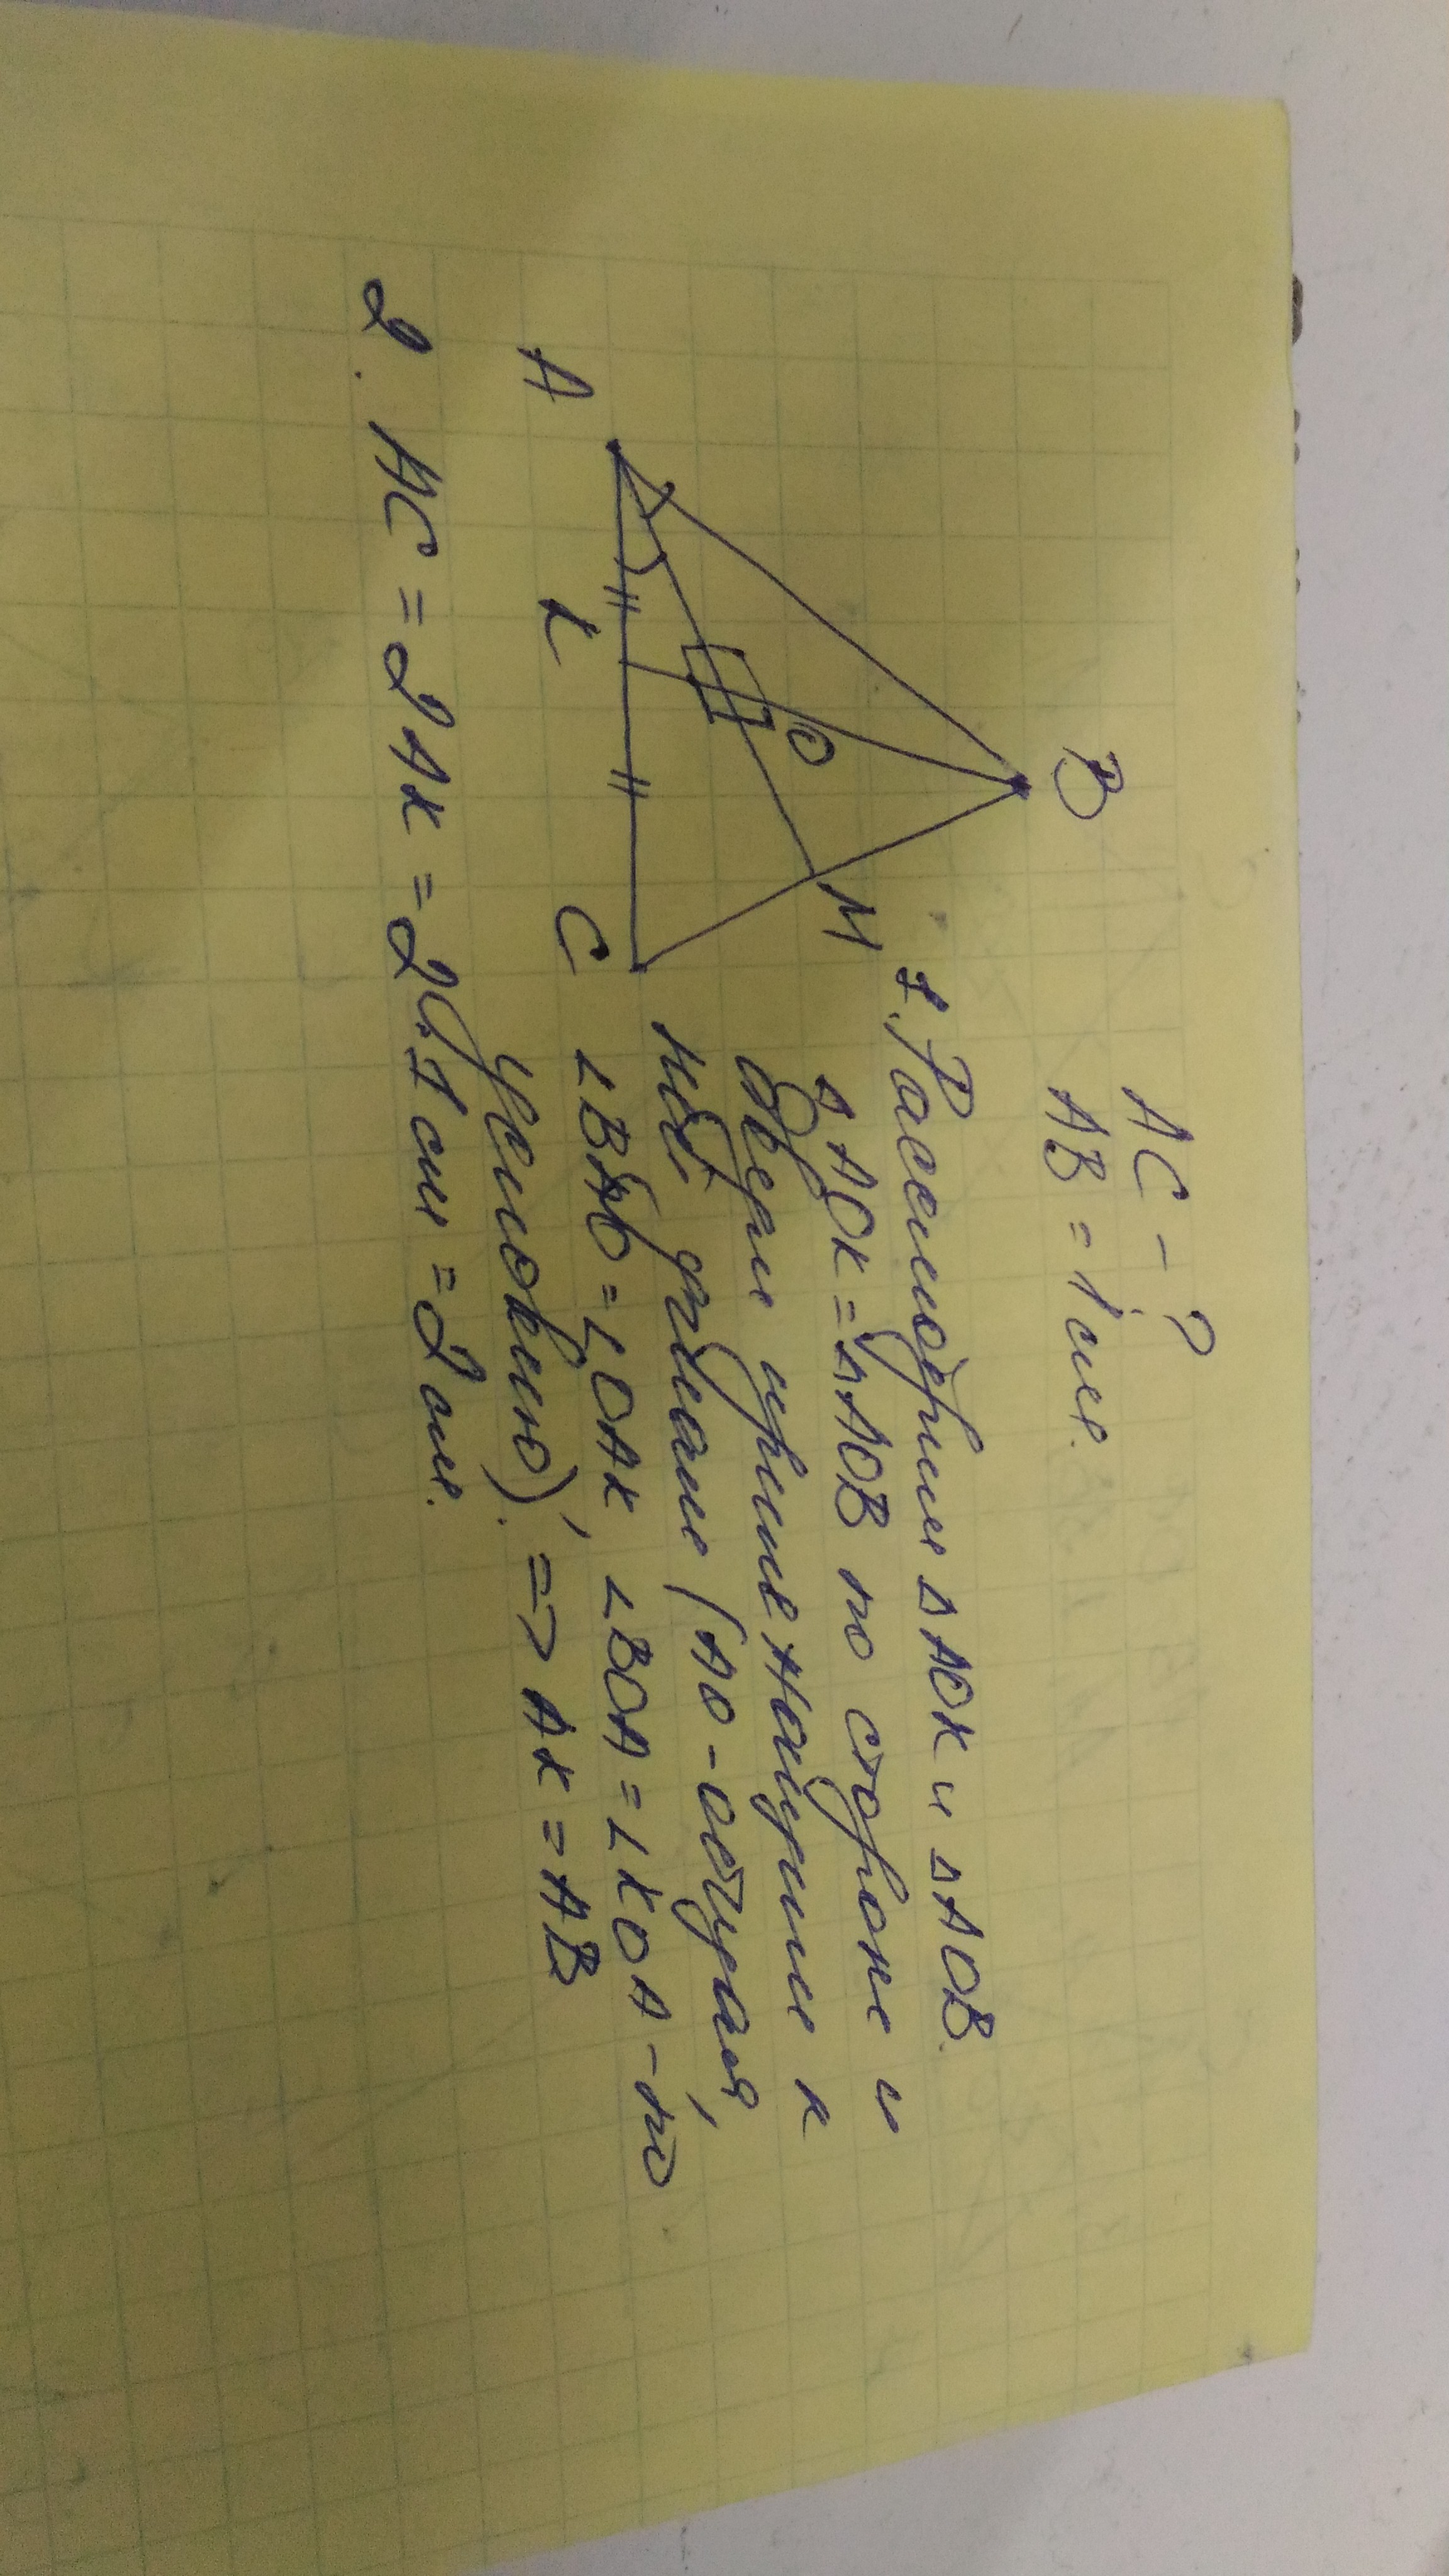 AC - ?
AB = 1 см.
B
M
O
A
K
C
1. Рассмотрим △AOK и △AOB.
△AOK = △AOB по стороне и
двум прилежащим к
ней углам (AO - общая,
∠BAO = ∠OAK, ∠BOA = ∠KOA - по
условию). => AK = AB
2. AC = 2AK = 2 · 1 см = 2 см.